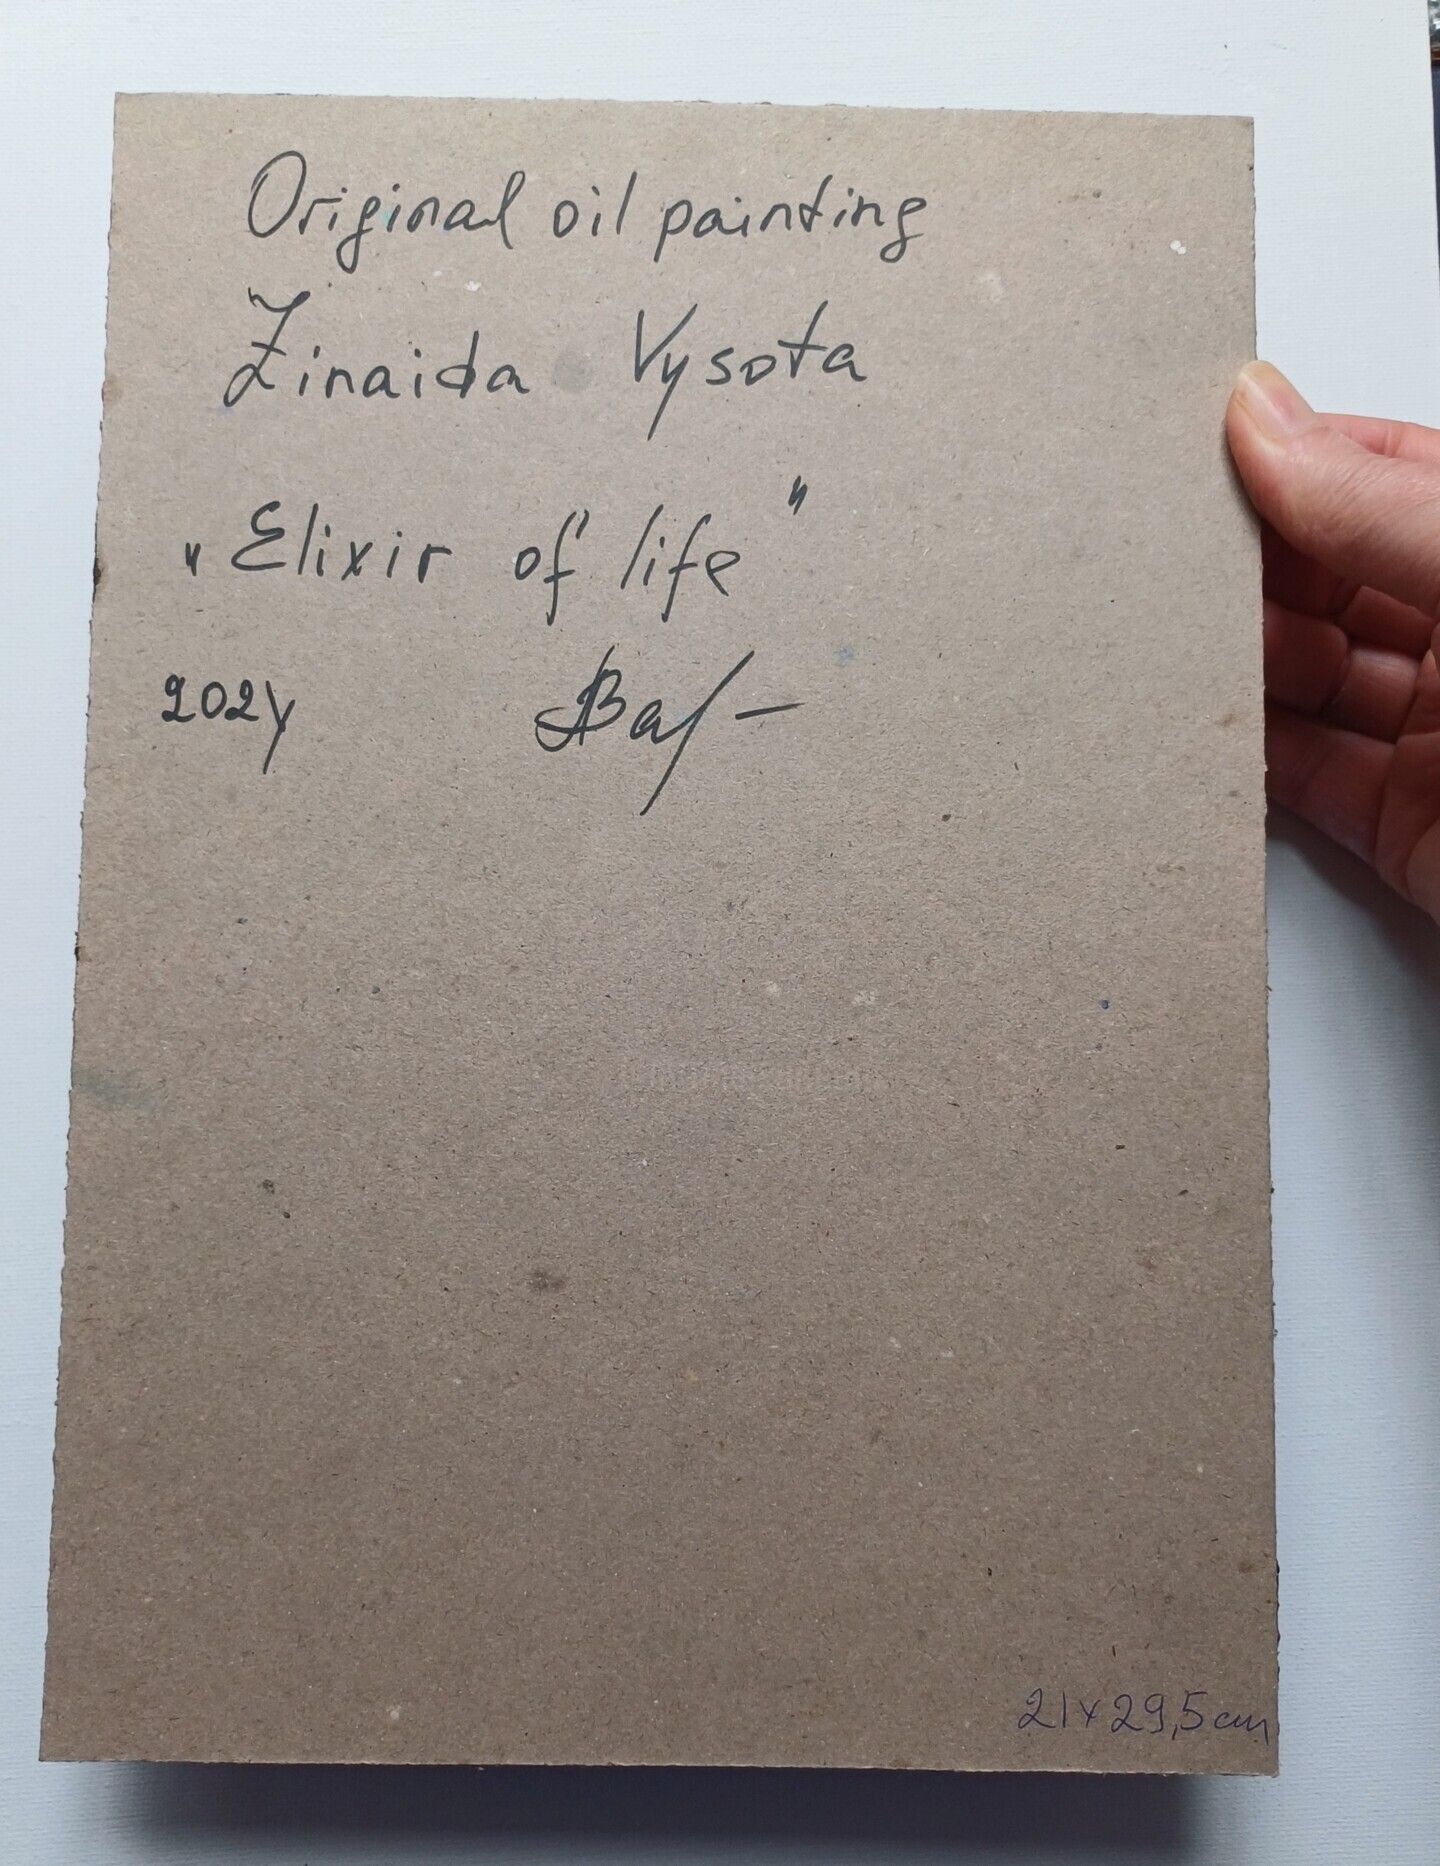 Original oil painting
Zinaida Vysota
"Elixir of life"
2024
21x29,5cm